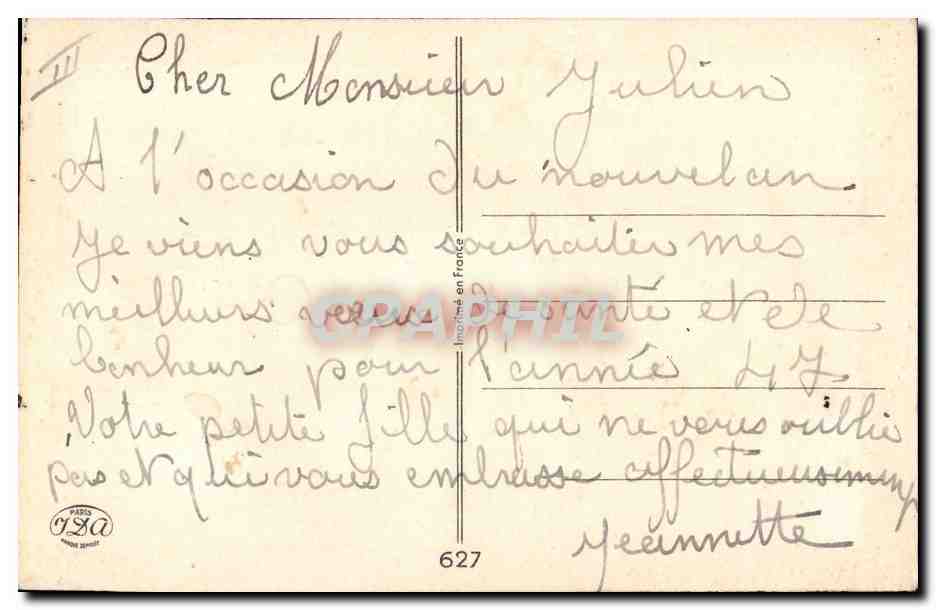 II
Cher Monsieur Julien
A l'occasion du nouvel an
Je viens vous souhaiter mes
meilleurs vœux de santé et de
bonheur pour l'année 47
Votre petite fille qui ne vous oublie
pas et qui vous embrasse affectueusement
Jeannette
Imprimé en France
CPAPHIL
PARIS
IDA
MARQUE DEPOSEE
627